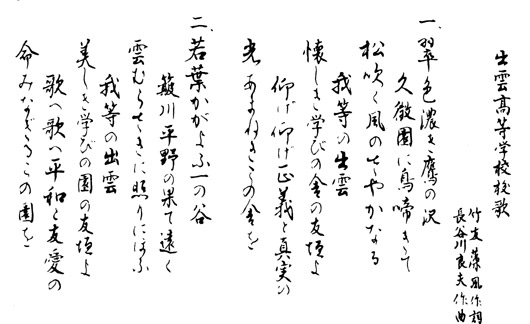 出雲高等学校校歌
竹友藻風作詞
長谷川良夫作曲
一、翠色濃き鷹の沢
久徴園に鳥啼きて
松吹く風のさやかなる
我等の出雲
懐しき学びの舎の友垣よ
仰げ仰げ正義と真実の
光あまねきこの舎を
二、若葉かがよふ一の谷
簸川平野の果て遠く
雲むらさきに照りにほふ
我等の出雲
美しき学びの園の友垣よ
歌へ歌へ平和と友愛の
命みなぎるこの園を